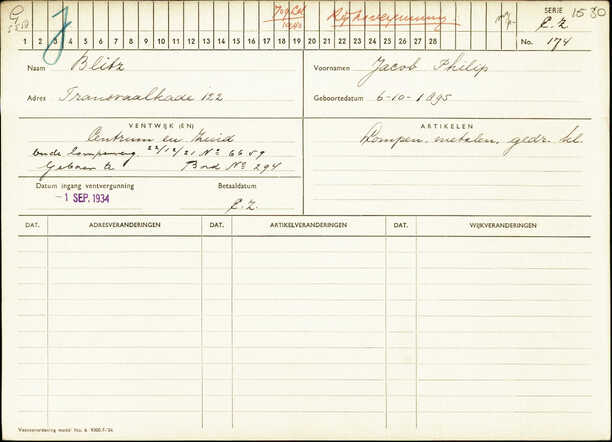 J
Rijksvergunning
SERIE
C.Z
1530
1 2 3 4 5 6 7 8 9 10 11 12 13 14 15 16 17 18 19 20 21 22 23 24 25 26 27 28
No. 174
Naam Blitz
Voornamen Jacob Philip
Adres Transvaalkade 122
Geboortedatum 6-10-1895
VENTWIJK (EN)
ARTIKELEN
Centrum en Zuid
Lompen, metalen, gedr. kl.
22/12/21 No 6659
No 294
Datum ingang ventvergunning
Betaaldatum
-1 SEP. 1934
C.Z.
DAT. ADRESVERANDERINGEN DAT. ARTIKELVERANDERINGEN DAT. WIJKVERANDERINGEN